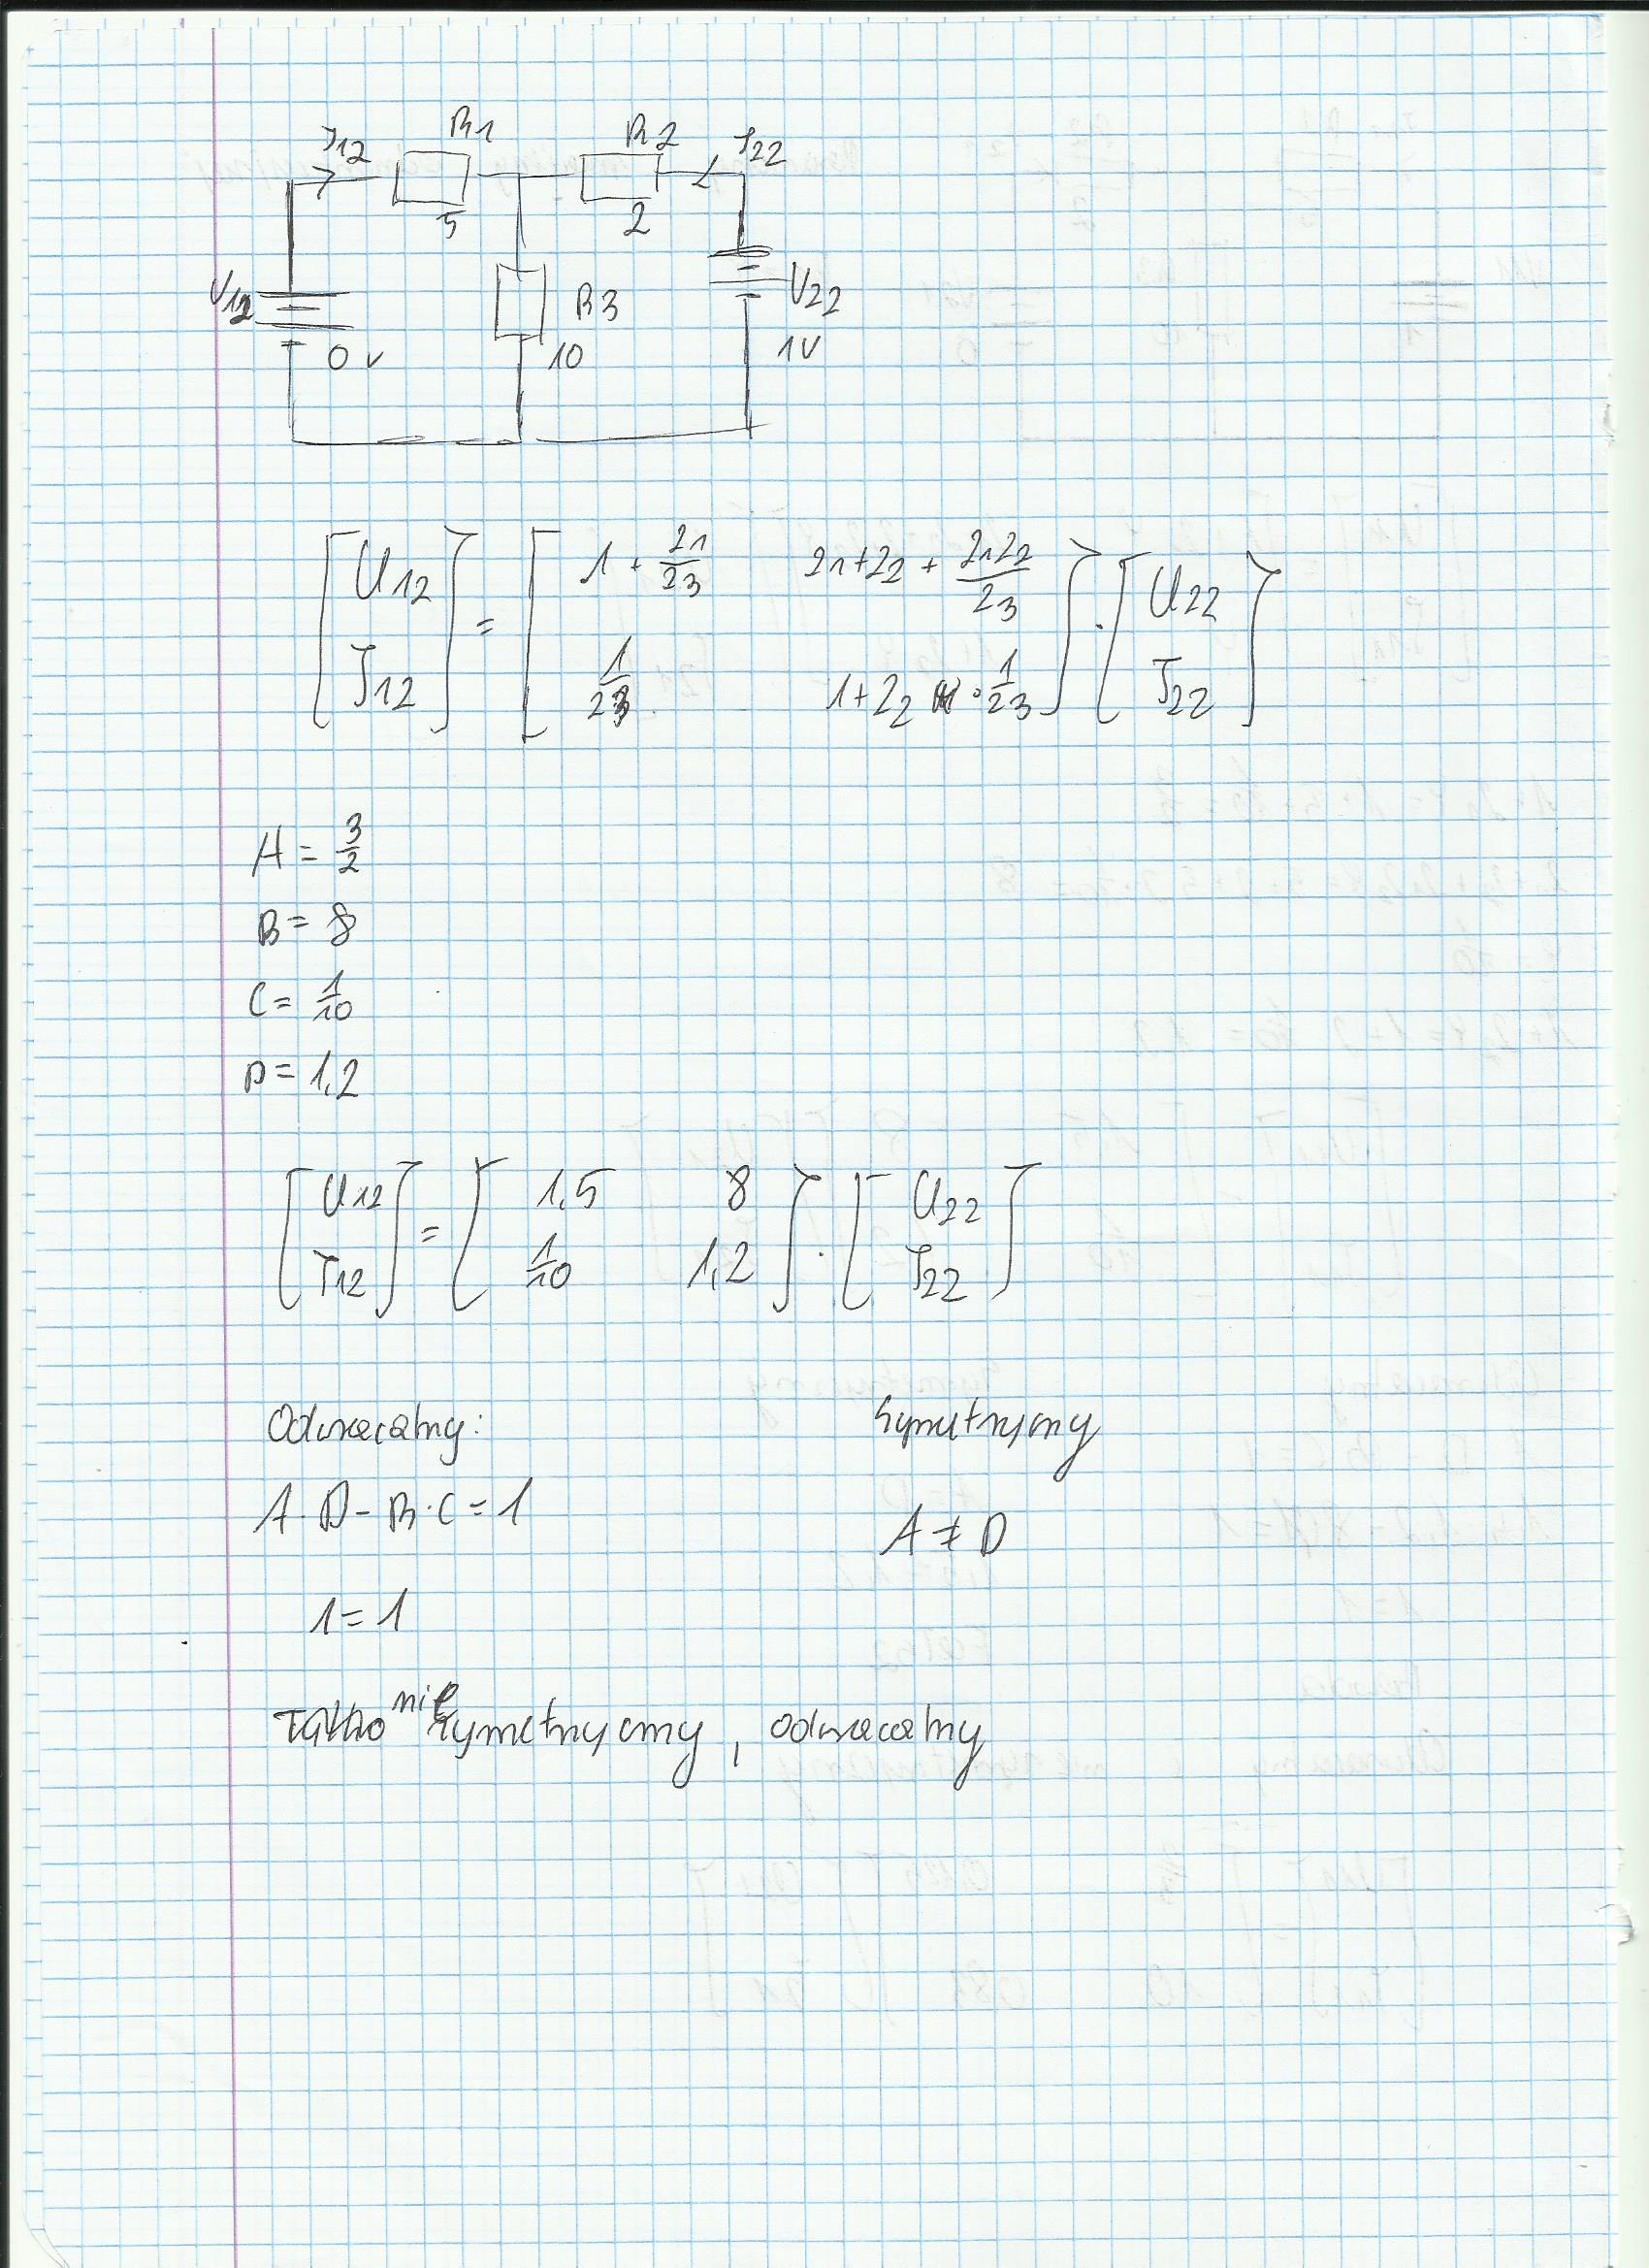 I12 R1 R2 I22
5 2
U12 R3 U22
0 V 10 1V
[U12 I12] = [1 + Z1/Z3 Z1+Z2 + Z1Z2/Z3
1/Z3 1+Z2 · 1/Z3] · [U22 I22]
A = 3/2
B = 8
C = 1/10
D = 1,2
[U12 I12] = [1,5 8
1/10 1,2] · [U22 I22]
Odwracalny: Symetryczny
A·D - B·C = 1 A ≠ D
1 = 1
nie symetryczny, odwracalny